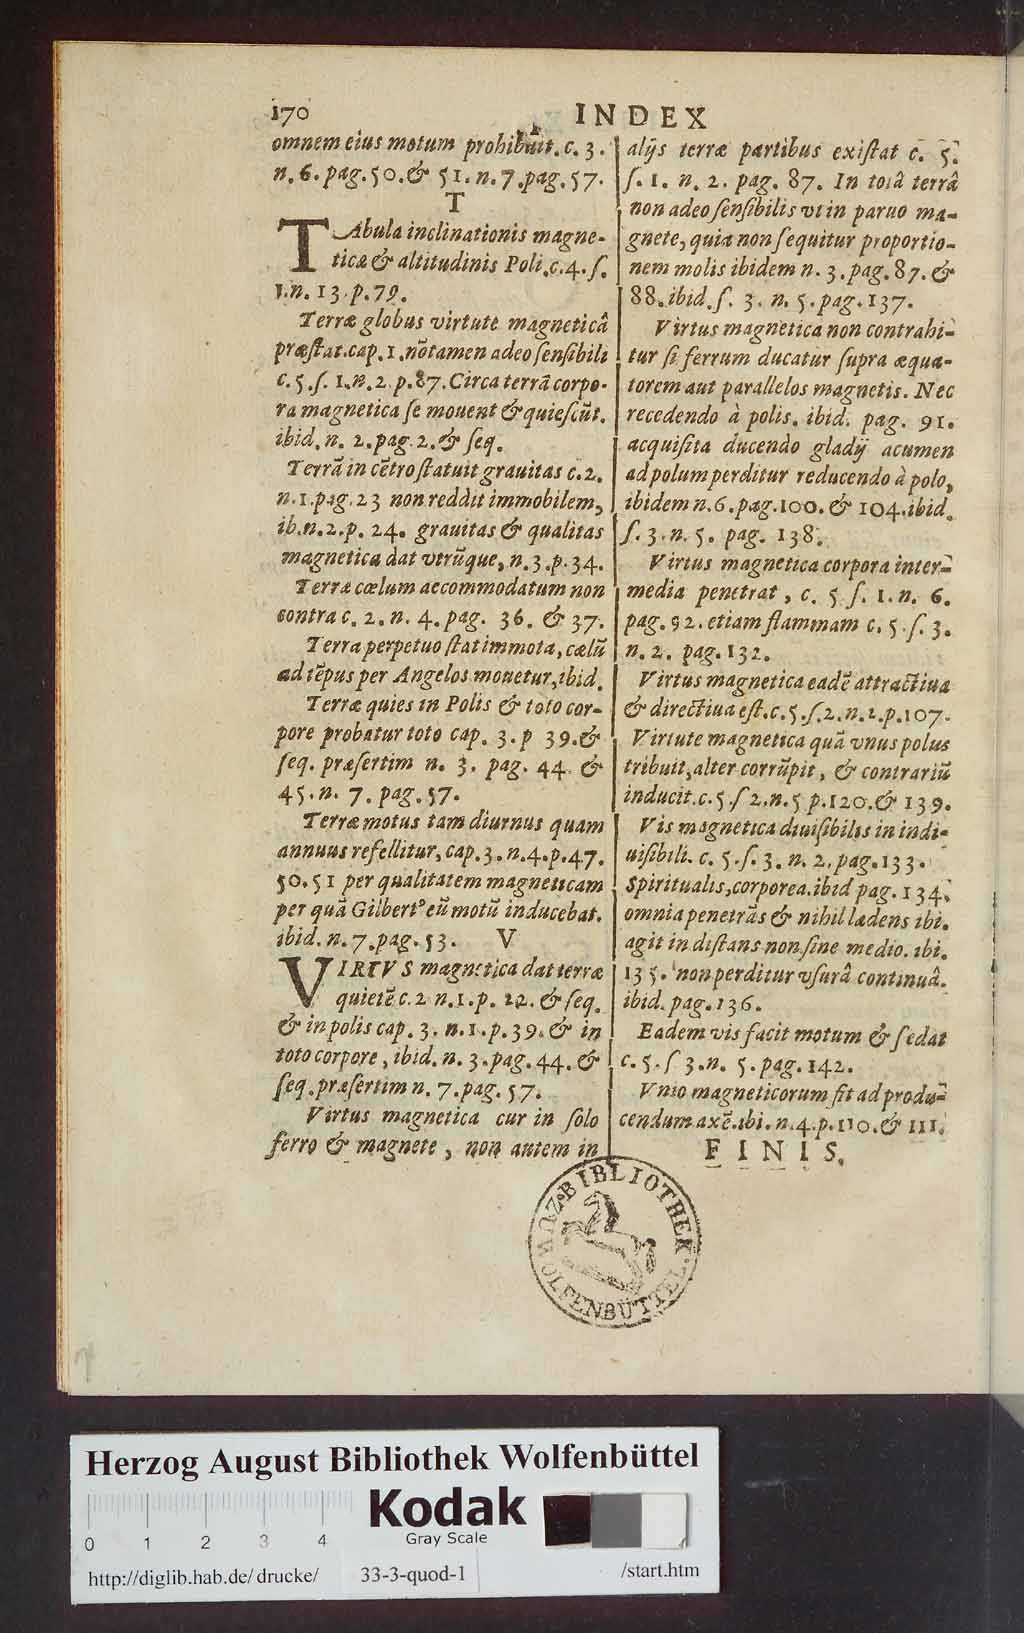 170 INDEX
omnem eius motum prohibuit. c. 3.
n. 6. pag. 50. & 51. n. 7. pag. 57.
T
TAbula inclinationis magne-
ticæ & altitudinis Poli. c. 4. ſ.
1. n. 13. p. 79.
Terræ globus virtute magneticâ
præſtat. cap. 1. nõ tamen adeo ſenſibili
c. 5. ſ. 1. n. 2. p. 87. Circa terrã corpo-
ra magnetica ſe mouent & quieſcũt.
ibid. n. 2. pag. 2. & ſeq.
Terrã in cẽtro ſtatuit grauitas c. 2.
n. 1. pag. 23 non reddit immobilem,
ib. n. 2. p. 24. grauitas & qualitas
magnetica dat vtrũque, n. 3. p. 34.
Terræ cœlum accommodatum non
contra c. 2. n. 4. pag. 36. & 37.
Terra perpetuo ſtat immota, cœlũ
ad tẽpus per Angelos mouetur, ibid.
Terræ quies in Polis & toto cor-
pore probatur toto cap. 3. p 39. &
ſeq. præſertim n. 3. pag. 44. &
45. n. 7. pag. 57.
Terræ motus tam diurnus quam
annuus refellitur, cap. 3. n. 4. p. 47.
50. 51 per qualitatem magneticam
per quã Gilbertꝰ eũ motũ inducebat.
ibid. n. 7. pag. 53.
V
VIRTVS magnetica dat terræ
quietẽ c. 2 n. 1. p. 22. & ſeq.
& in polis cap. 3. n. 1. p. 39. & in
toto corpore, ibid. n. 3. pag. 44. &
ſeq. præſertim n. 7. pag. 57.
Virtus magnetica cur in ſolo
ferro & magnete, non autem in
alijs terræ partibus exiſtat c. 5.
ſ. 1. n. 2. pag. 87. In totâ terrâ
non adeo ſenſibilis vt in paruo ma-
gnete, quia non ſequitur proportio-
nem molis ibidem n. 3. pag. 87. &
88. ibid. ſ. 3. n. 5. pag. 137.
Virtus magnetica non contrahi-
tur ſi ferrum ducatur ſupra æqua-
torem aut parallelos magnetis. Nec
recedendo à polis. ibid. pag. 91.
acquiſita ducendo gladij acumen
ad polum perditur reducendo à polo,
ibidem n. 6. pag. 100. & 104. ibid.
ſ. 3. n. 5. pag. 138.
Virtus magnetica corpora inter-
media penetrat, c. 5. ſ. 1. n. 6.
pag. 92. etiam flammam c. 5. ſ. 3.
n. 2. pag. 132.
Virtus magnetica eadẽ attractiua
& directiua eſt. c. 5. ſ. 2. n. 2. p. 107.
Virtute magnetica quã vnus polus
tribuit, alter corrũpit, & contrariũ
inducit. c. 5. ſ 2. n. 5 p. 120. & 139.
Vis magnetica diuiſibilis in indi-
uiſibili. c. 5. ſ. 3. n. 2. pag. 133.
Spiritualis, corporea. ibid pag. 134.
omnia penetrãs & nihil lædens ibi.
agit in diſtans non ſine medio. ibi.
135. non perditur vſurâ continuâ.
ibid. pag. 136.
Eadem vis facit motum & ſedat
c. 5. ſ 3. n. 5. pag. 142.
Vnio magneticorum fit ad produ-
cendum axẽ. ibi. n. 4. p. 110. & 111.
FINIS.
BIBLIOTHEK.
WOLFENBÜTTEL
Herzog August Bibliothek Wolfenbüttel
Kodak
Gray Scale
0 1 2 3 4
http://diglib.hab.de/drucke/ 33-3-quod-1 /start.htm